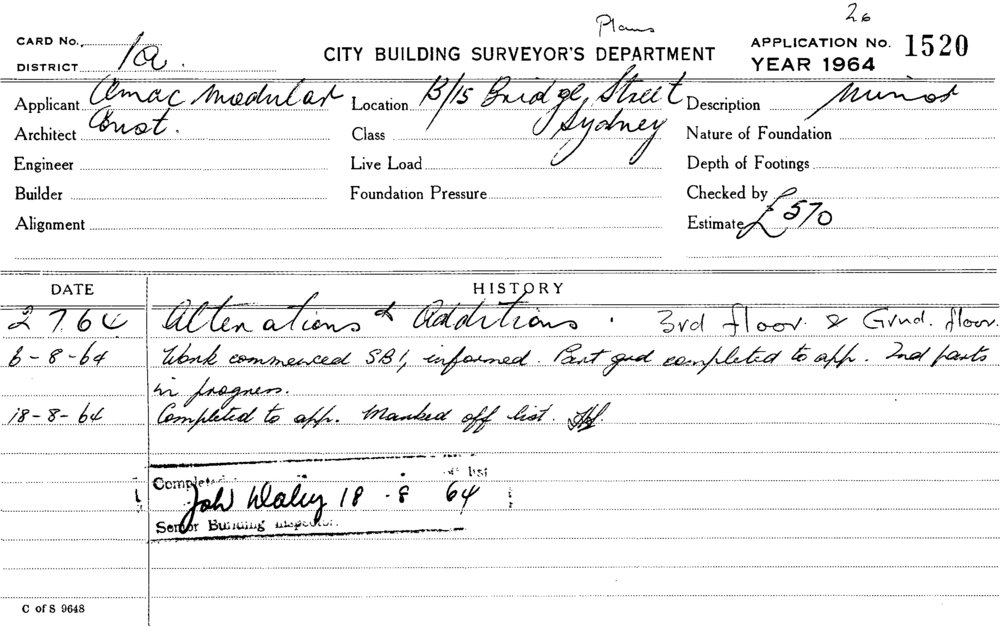 Plans 26
CARD No. CITY BUILDING SURVEYOR'S DEPARTMENT APPLICATION No. 1520
DISTRICT 1a. YEAR 1964
Applicant Amac Modular Location 13/15 Bridge Street Description Minor
Architect Const. Class Sydney Nature of Foundation
Engineer Live Load Depth of Footings
Builder Foundation Pressure Checked by
Alignment Estimate £570
DATE HISTORY
2 7 64 Alterations & Additions. 3rd floor. & Grnd. floor.
6-8-64 Work commenced SBI, informed. Part gnd completed to app. 2nd parts
in progress.
18-8-64 Completed to app. Marked off list.
Completed off list
Daley 18 . 8 64
Senior Building Inspector.
C of S 9648